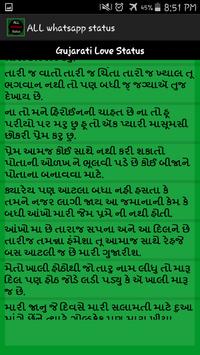 45% 8:51 PM
ALL whatsapp status
Gujarati Love Status
તારી જ વાતો તારી જ ચિંતા તારો જ ખ્યાલ તુ
ભગવાન નથી તો પણ બધી જ જગ્યાએ તુજ
દેખાય છે.
ના તો મને હિરોઈનની ચાહત છે ના તો હૂ
પરીયો પર મરુ છુ હૂ તો એક પ્યારી માસૂમસી
છોકરી પ્રેમ કરુ છુ.
પ્રેમ આમજ કોઈ સાથે નથી કરી શકાતો
પોતાની ઓળખ ને ભૂલવી પડે છે કોઈ બીજાને
પોતાના બનાવવા માટે.
ક્યારેય પણ આટલા બધા નહી હસતા કે
તમને નજર લાગી જાય આ જમાનાની કેમ કે
બધી આંખો મારી જેમ પ્રેમ ની નથી હોતી.
આંખો મા છે તારાજ સપના અને આ દિલને છે
તારીજ તમન્ના હંમેશા તૂ આમજ સાથે રેહજે
બસ દિલ ની છે જ મારી ગુજારીશ.
મેતો ખાલી હોઠોથી જો તારુ નામ લીધુ તો મારૂ
દિલ પણ હોઠ જોડે લડી પડ્યુ કે એ ખાલી મારુ
જ છે.
મારી જાનુ જે દિવસે મારી સલામતી માટે દુઆ